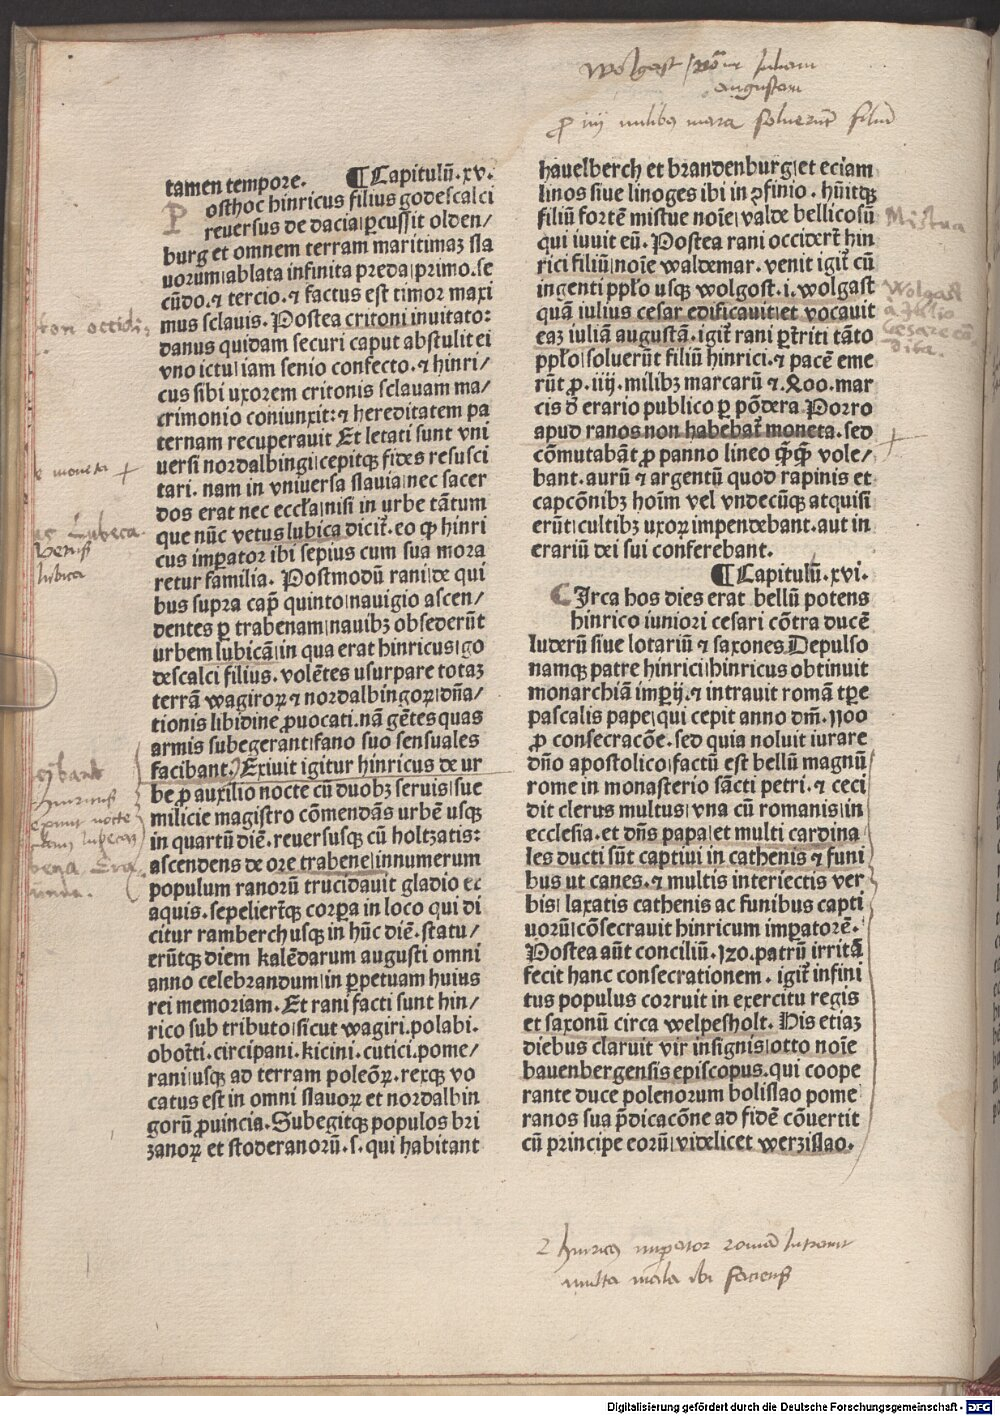 Wolgast
augustam
ꝓ iiij milibꝰ marca soluerūt filiū
tamen tempore. ¶ Capitulū. xv.
Posthoc hinricus filius godescalci
reuersus de dacia ꝑcussit olden/
burg et omnem terram maritimaꝫ sla
uorum ablata infinita preda primo. se
cūdo. ⁊ tercio. ⁊ factus est timor maxi
mus sclauis. Postea critoni inuitato:
danus quidam securi caput abstulit ei
vno ictu iam senio confecto. ⁊ hinri/
cus sibi uxorem critonis sclauam ma/
crimonio coniunxit: ⁊ hereditatem pa
ternam recuperauit Et letati sunt vni
uersi nordalbingi cepitqꝫ fides resusci
tari. nam in vniuersa slauia nec sacer
dos erat nec eccła nisi in urbe tātum
que nūc vetus lubica dicit̄. eo ꝙ hinri
cus imꝑator ibi sepius cum sua mora
retur familia. Postmodū rani de qui
bus supra cap̄ quinto nauigio ascen/
dentes ꝑ trabenam nauibꝫ obsederūt
urbem lubicā in qua erat hinricus go
descalci filius. volētes usurpare totaꝫ
terrā wagiroꝝ ⁊ nordalbingoꝝ dn̄a/
tionis libidine ꝓuocati. nā gētes quas
armis subegerant fano suo sensuales
facibant. Exiuit igitur hinricus de ur
be ꝓ auxilio nocte cū duobꝫ seruis sue
milicie magistro cōmendās urbē usqꝫ
in quartū diē. reuersusqꝫ cū holtzatis:
ascendens de ore trabene innumerum
populum ranorū trucidauit gladio et
aquis. sepeliert̄qꝫ corꝑa in loco qui di
citur ramberch usqꝫ in hūc diē. statu/
erūtqꝫ diem kalēdarum augusti omni
anno celebrandum in ꝑpetuam huius
rei memoriam. Et rani facti sunt hin/
rico sub tributo sicut wagiri. polabi.
obotīti. circipani. kicini. cutici. pome/
rani usqꝫ ad terram poleōꝝ. rexqꝫ vo
catus est in omni slauoꝝ et nordalbin
gorū ꝓuincia. Subegitqꝫ populos bri
zanoꝝ et stoderanorū. s. qui habitant
hauelberch et brandenburg et eciam
linos siue linoges ibi in ꝯfinio. hūitqꝫ
filiū fortē mistue noīe valde bellicosū
qui iuuit eū. Postea rani occidert̄ hin
rici filiū noīe waldemar. venit igit̄ cū
ingenti ppło usqꝫ wolgost. i. wolgast
quā iulius cesar edificauit et vocauit
eaꝫ iuliā augustā. igit̄ rani ꝑt̄riti tāto
ppło soluerūt filiū hinrici. ⁊ pacē eme
rūt ꝓ. iiij. milibꝫ marcarū ⁊. 800. mar
cis đ erario publico ꝑ pōdera Porro
apud ranos non habebat̄ moneta. sed
cōmutabāt ꝓ panno lineo q̄ꝙ vole/
bant. aurū ⁊ argentū quod rapinis et
capcōnibꝫ hoīm vel vndecūqꝫ atquisi
erūt cultibꝫ uxoꝝ impendebant. aut in
erariū dei sui conferebant.
¶ Capitulū. xvi.
CIrca hos dies erat bellū potens
hinrico iuniori cesari cōtra ducē
luderū siue lotariū ⁊ saxones Depulso
namqꝫ patre hinrici hinricus obtinuit
monarchiā imꝑij. ⁊ intrauit romā tꝑe
pascalis pape qui cepit anno dm̄. 1100
ꝓ consecracōe. sed quia noluit iurare
dn̄o apostolico factū est bellū magnū
rome in monasterio sācti petri. ⁊ ceci
dit clerus multus vna cū romanis in
ecclesia. et dn̄s papa et multi cardina
les ducti sūt captiui in cathenis ⁊ funi
bus ut canes. ⁊ multis interiectis ver
bis laxatis cathenis ac funibus capti
uorū cōsecrauit hinricum imꝑatorē.
Postea aūt conciliū. 120. patrū irritā
fecit hanc consecrationem. igit̄ infini
tus populus corruit in exercitu regis
et saxonū circa welpesholt. His etiaꝫ
diebus claruit vir insignis otto noīe
bauenbergensis episcopus. qui coope
rante duce polenorum bolislao pome
ranos sua p̄dicacōne ad fidē cōuertit
cū principe eorū videlicet werzislao.
Mistua
Wolgast
à Julio
Cesare cō
dita.
moneta
Lubeca
vetus
lubica
hinricus
exiuit nocte
hinricus imperator romā intrauit
multa mala ibi faciens
Digitalisierung gefördert durch die Deutsche Forschungsgemeinschaft - DFG